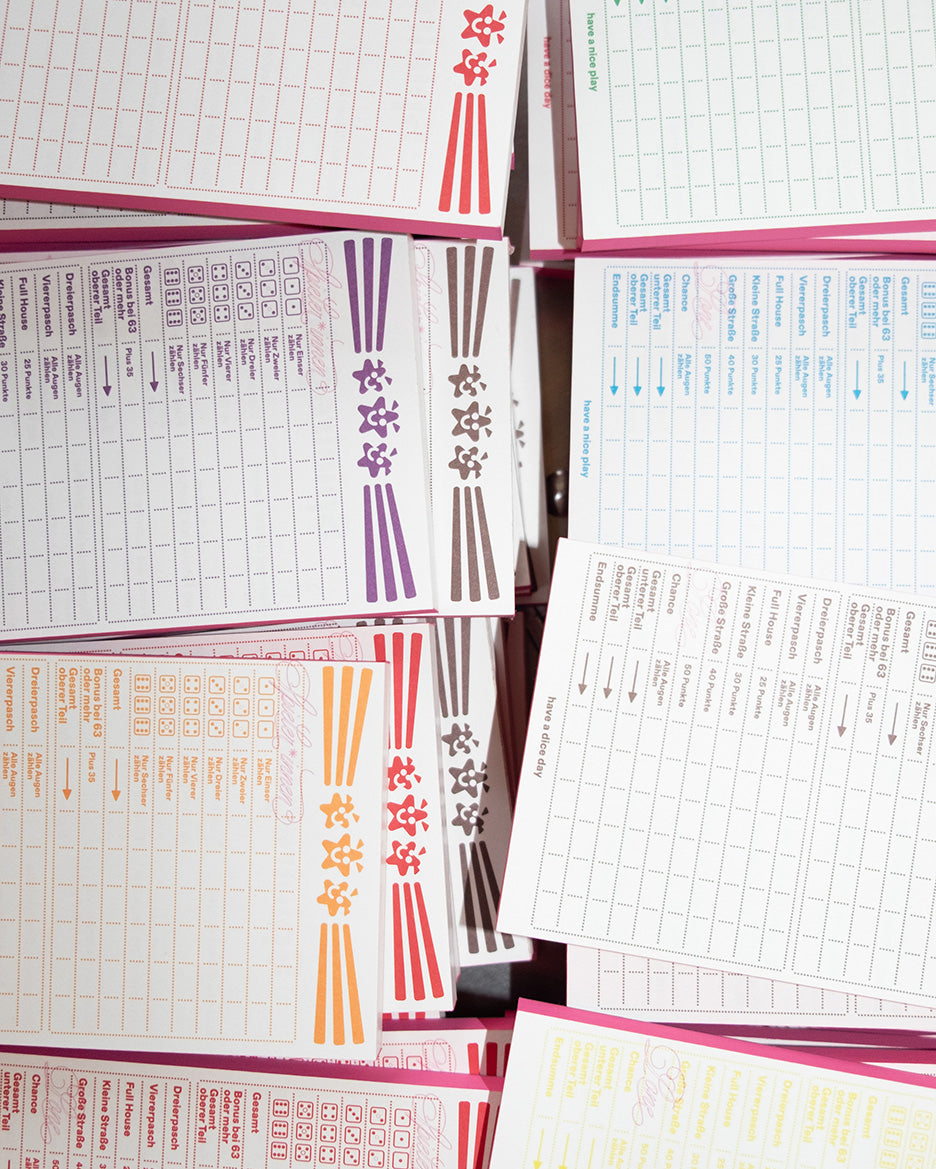 have a dice day
have a nice play
Nur Einser
zählen
Nur Zweier
Nur Dreier
Nur Vierer
Nur Fünfer
Nur Sechser
zählen
Gesamt
Bonus bei 63
oder mehr
Plus 35
Gesamt
oberer Teil
Dreierpasch
Alle Augen
zählen
Viererpasch
Alle Augen
zählen
Full House
25 Punkte
Kleine Straße
30 Punkte
Nur Sechser
zählen
Gesamt
Bonus bei 63
oder mehr
Plus 35
Gesamt
oberer Teil
Dreierpasch
Alle Augen
zählen
Viererpasch
Alle Augen
zählen
Full House
25 Punkte
Kleine Straße
30 Punkte
Große Straße
40 Punkte
50 Punkte
Chance
Alle Augen
zählen
Gesamt
unterer Teil
Gesamt
oberer Teil
Endsumme
have a nice play
Nur Sechser
zählen
Gesamt
Bonus bei 63
oder mehr
Plus 35
Gesamt
oberer Teil
Dreierpasch
Alle Augen
zählen
Viererpasch
Alle Augen
zählen
Full House
25 Punkte
Kleine Straße
30 Punkte
Große Straße
40 Punkte
50 Punkte
Chance
Alle Augen
zählen
Gesamt
unterer Teil
Gesamt
oberer Teil
Endsumme
have a dice day
Nur Einser
zählen
Nur Zweier
Nur Dreier
Nur Vierer
Nur Fünfer
Nur Sechser
zählen
Gesamt
Bonus bei 63
oder mehr
Plus 35
Gesamt
oberer Teil
Dreierpasch
Alle Augen
zählen
Viererpasch
Alle Augen
zählen
Gesamt
Bonus bei 63
oder mehr
Gesamt
oberer Teil
Dreierpasch
Viererpasch
Full House
Kleine Straße
Große Straße
Chance
Gesamt
unterer Teil
Gesamt
Bonus bei 63
oder mehr
Gesamt
oberer Teil
Viererpasch
Chance
Gesamt
unterer Teil
Gesamt
oberer Teil
Endsumme